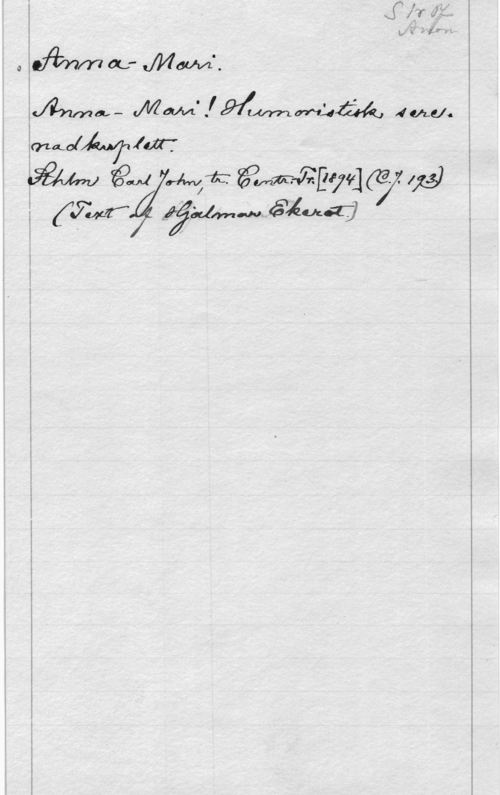 Anna-Mari.
Anna-Mari! Humoristisk sere-
nadkuplett.
Sthlm Carl John, tr. Centr. Tr. [1894] (C.J. 193)
(Text af Hjalmar Ekerot.)